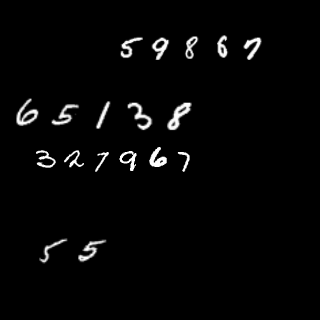 59867
65138
327967
55